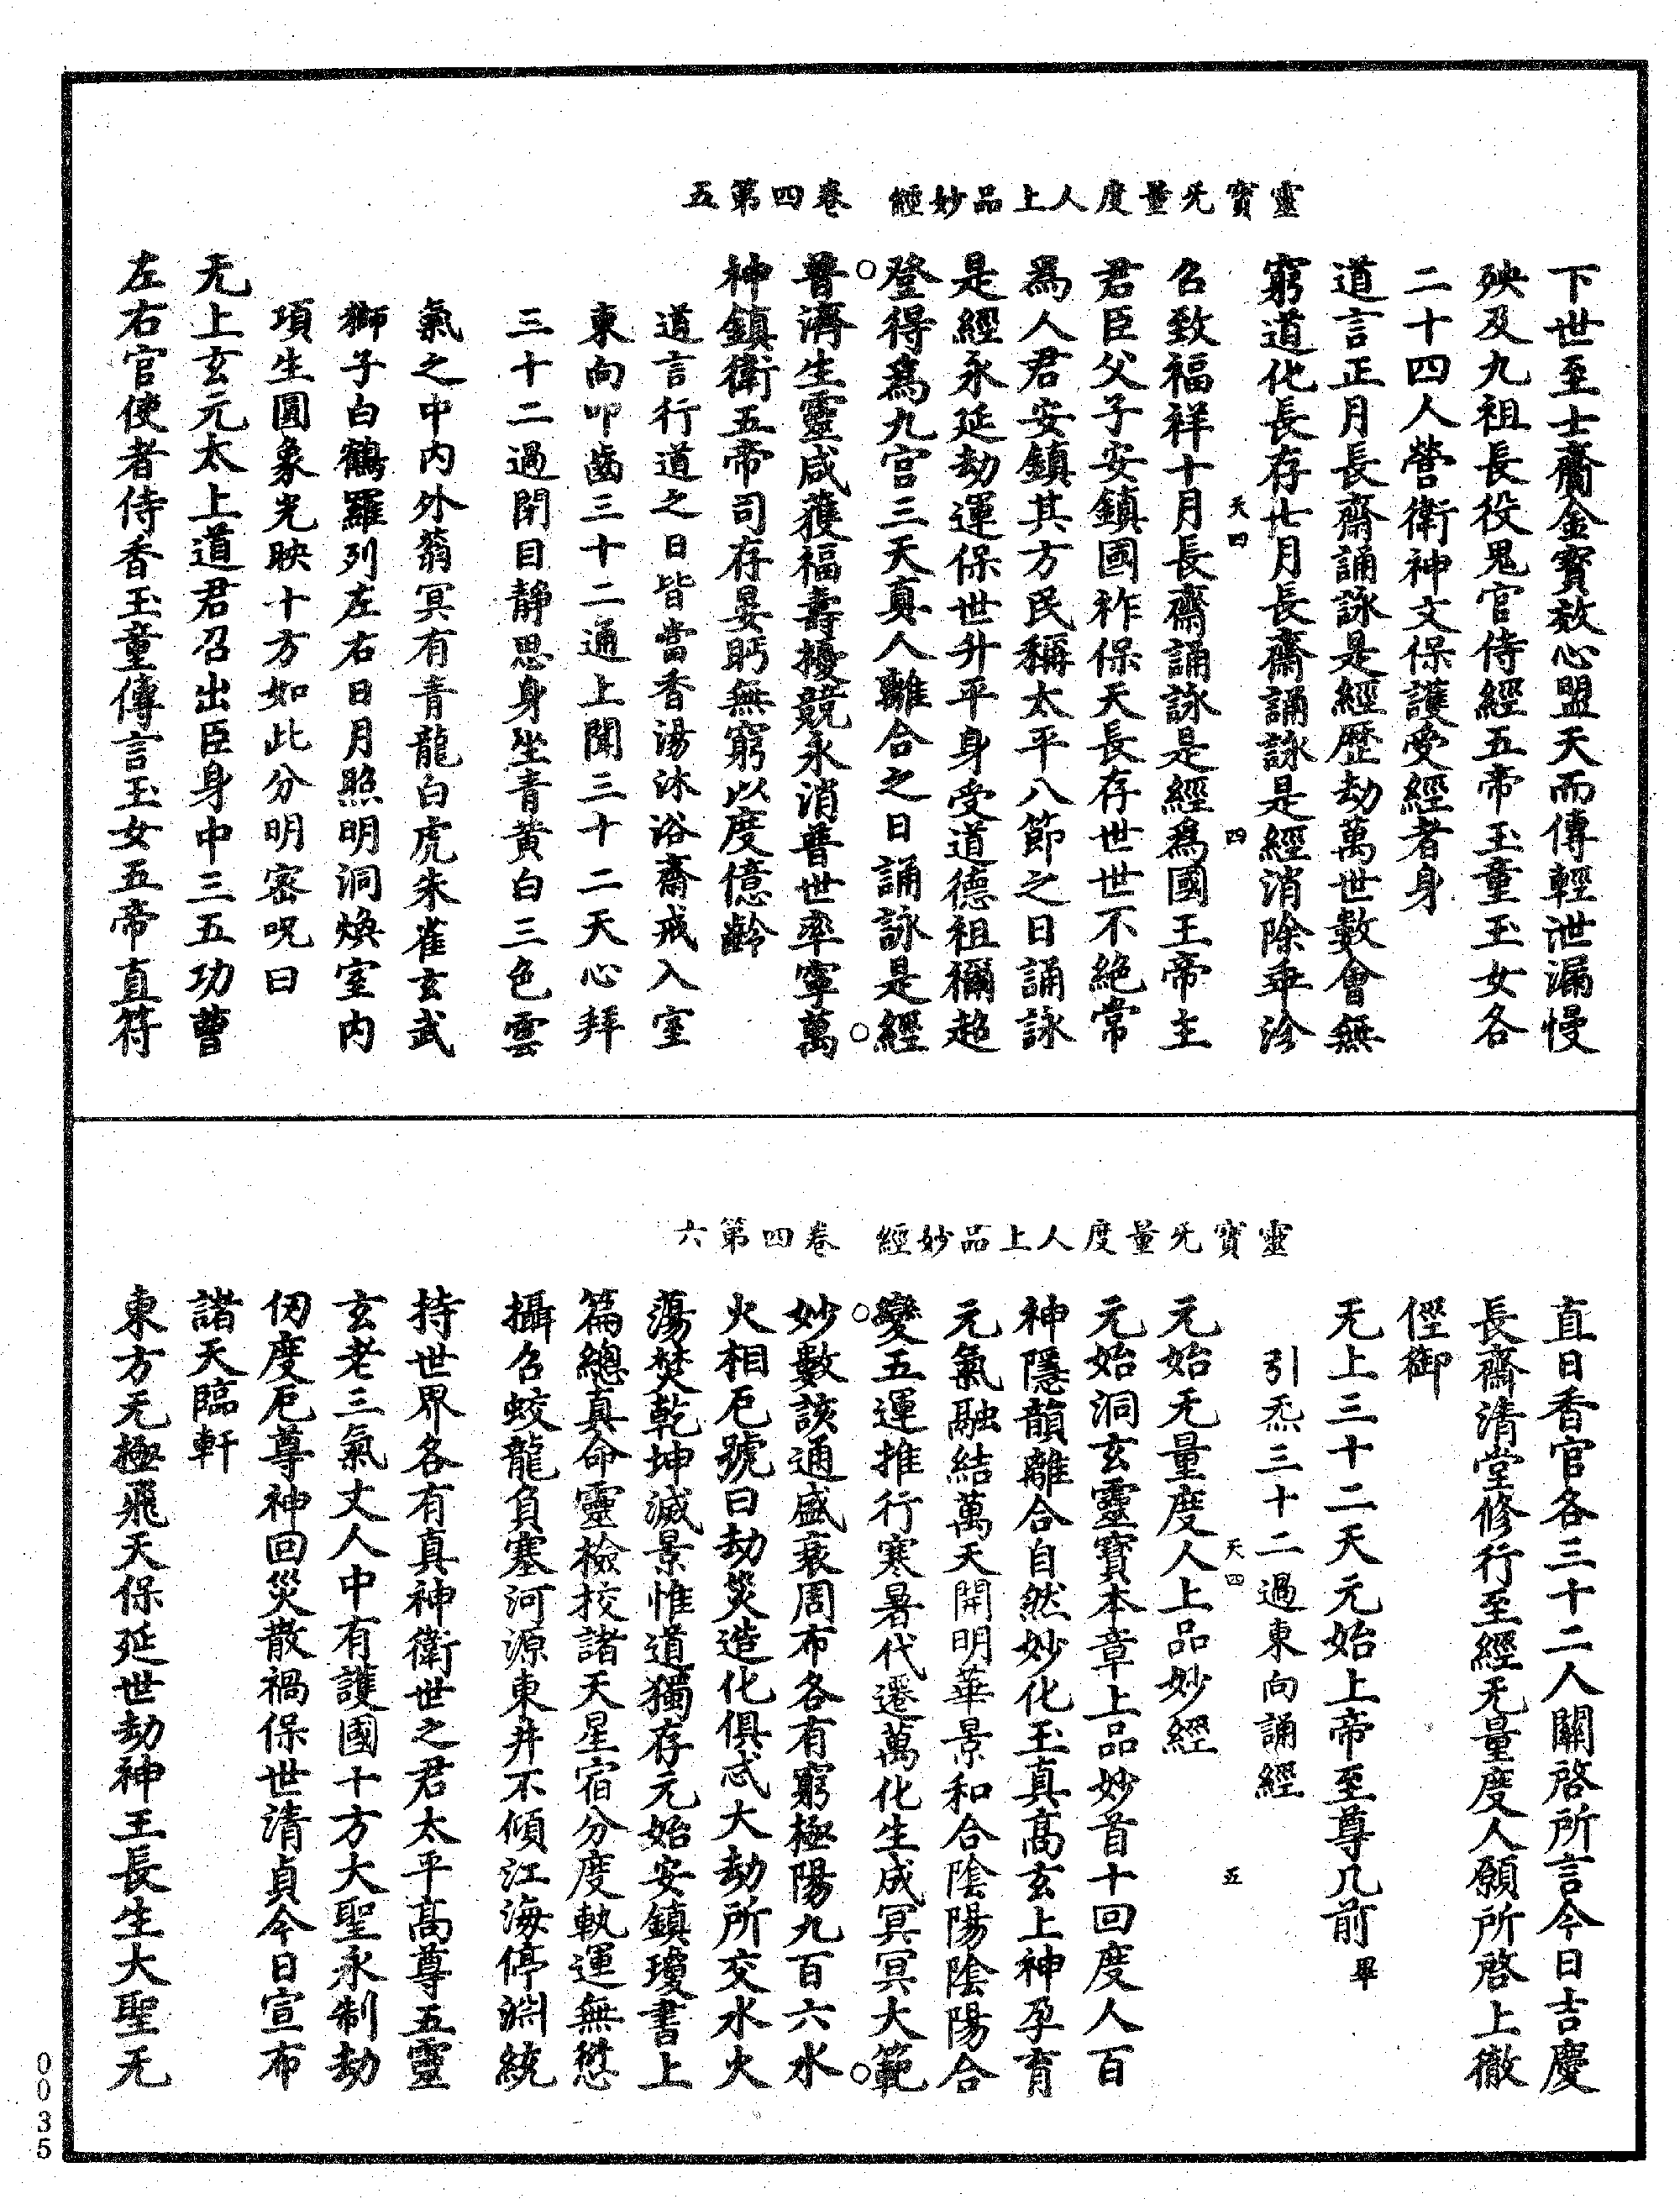 靈寶无量度人上品妙經 卷四第五
下世至士齎金寶效心盟天而傳輕泄漏慢
殃及九祖長役鬼官侍經五帝玉童玉女各
二十四人營衛神文保護受經者身
道言正月長齋誦詠是經歷劫萬世數會無
窮道化長存七月長齋誦詠是經消除乖沴
天四 四
召致福祥十月長齋誦詠是經爲國王帝主
君臣父子安鎮國祚保天長存世世不絕常
爲人君安鎮其方民稱太平八節之日誦詠
是經永延劫運保世升平身受道德祖禰超
登得爲九宮三天真人離合之日誦詠是經
普濟生靈咸獲福壽擾競永消普世率寧萬
神鎮衛五帝司存晏眄無窮以度億齡
道言行道之日皆當香湯沐浴齋戒入室
東向叩齒三十二通上聞三十二天心拜
三十二過閉目靜思身坐青黃白三色雲
氣之中內外蓊冥有青龍白虎朱雀玄武
獅子白鶴羅列左右日月照明洞煥室內
項生圓象光映十方如此分明密呪曰
无上玄元太上道君召出臣身中三五功曹
左右官使者侍香玉童傳言玉女五帝直符
靈寶无量度人上品妙經 卷四第六
直日香官各三十二人關啓所言今日吉慶
長齋清堂修行至經无量度人願所啓上徹
徑御
无上三十二天元始上帝至尊几前畢
引炁三十二過東向誦經
天四 五
元始无量度人上品妙經
元始洞玄靈寶本章上品妙首十回度人百
神隱韻離合自然妙化玉真高玄上神孕育
元氣融結萬天開明華景和合陰陽陰陽合
變五運推行寒暑代遷萬化生成冥冥大範
妙數該通盛衰周布各有窮極陽九百六水
火相厄號曰劫災造化俱忒大劫所交水火
蕩焚乾坤滅景惟道獨存元始安鎮瓊書上
篇總真命靈檢校諸天星宿分度軌運無愆
攝召蛟龍負塞河源東井不傾江海停淵統
持世界各有真神衛世之君太平高尊五靈
玄老三氣丈人中有護國十方大聖永制劫
仞度厄尊神回災散禍保世清貞今日宣布
諸天臨軒
東方无極飛天保延世劫神王長生大聖无
0035